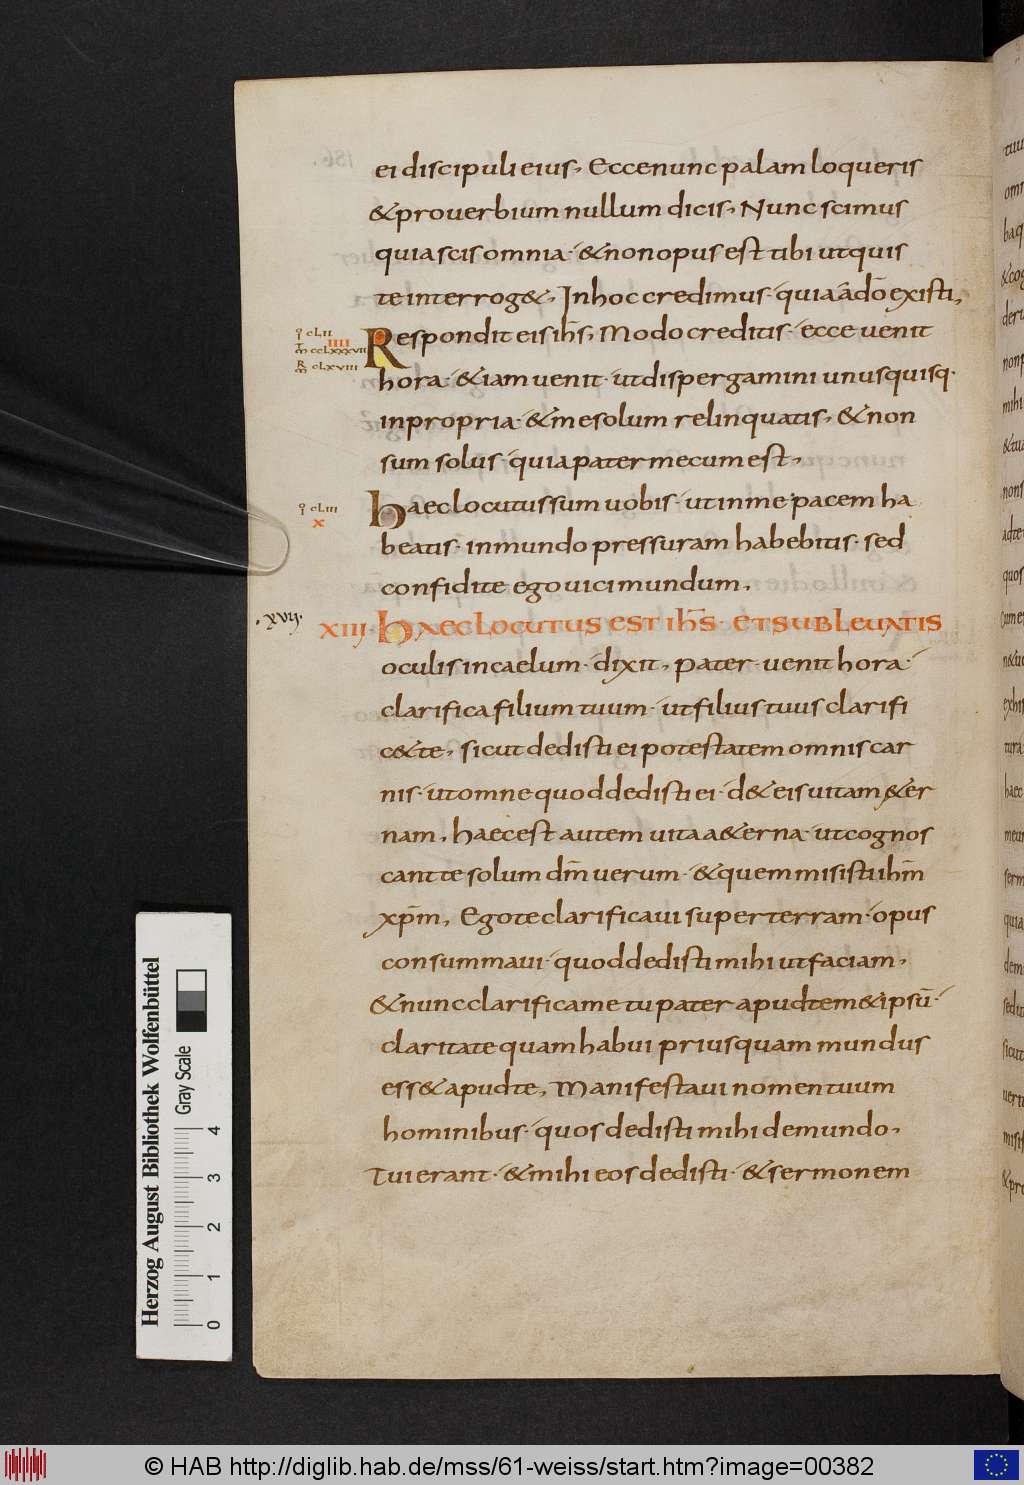 ei discipuli eius, Ecce nunc palam loqueris
& prouerbium nullum dicis, Nunc scimus
quia scis omnia · & non opus est tibi ut quis
te interrog&, In hoc credimus · quia a dō existi,
Respondit eis ih̄s, Modo creditis · ecce uenit
hora · & iam uenit · ut dispergamini unusquisq·
in propria · & me solum relinquatis, & non
sum solus · quia pater mecum est,
Haec locutus sum uobis · ut in me pacem ha
beatis · in mundo pressuram habebitis · sed
confidite ego uici mundum,
HAEC LOCUTUS EST IH̄S · ET SUBLEUATIS
oculis in caelum · dixit, pater · uenit hora ·
clarifica filium tuum · ut filius tuus clarifi
c& te, sicut dedisti ei potestatem omnis car
nis · ut omne quod dedisti ei · d& eis uitam &er
nam, haec est autem uita a&erna · ut cognos
cant te solum dm̄ uerum · & quem misisti ih̄m
xp̄m, Ego te clarificaui super terram · opus
consummaui · quod dedisti mihi ut faciam,
& nunc clarifica me tu pater apud tem&ipsū ·
claritate quam habui priusquam mundus
ess& apud te, Manifestaui nomen tuum
hominibus · quos dedisti mihi de mundo,
Tui erant · & mihi eos dedisti · & sermonem
CLII
IIII
CCLXXXVII
CLXVIII
CLIII
X
·XVII·
XIII·
Herzog August Bibliothek Wolfenbüttel
Gray Scale
0 1 2 3 4
© HAB http://diglib.hab.de/mss/61-weiss/start.htm?image=00382